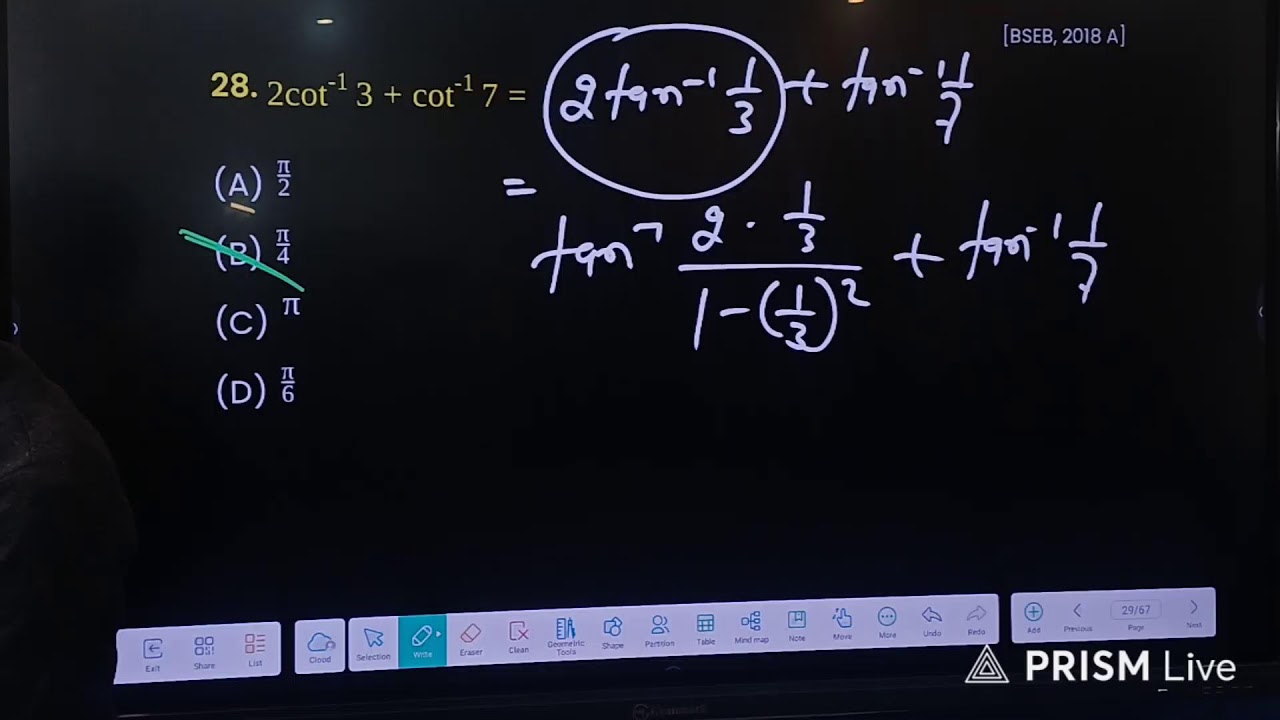 [BSEB, 2018 A]
28. 2cot⁻¹ 3 + cot⁻¹ 7 = 2 tan⁻¹ 1/3 + tan⁻¹ 1/7
(A) π/2
= tan⁻¹ (2 · 1/3)/(1 − (1/3)²) + tan⁻¹ 1/7
(B) π/4
(C) π
(D) π/6
Exit Share List Cloud Selection Write Eraser Clean Geometric Tools Shape Partition Table Mind map Note Move More Undo Redo Add Previous 29/67 Page Next
PRISM Live